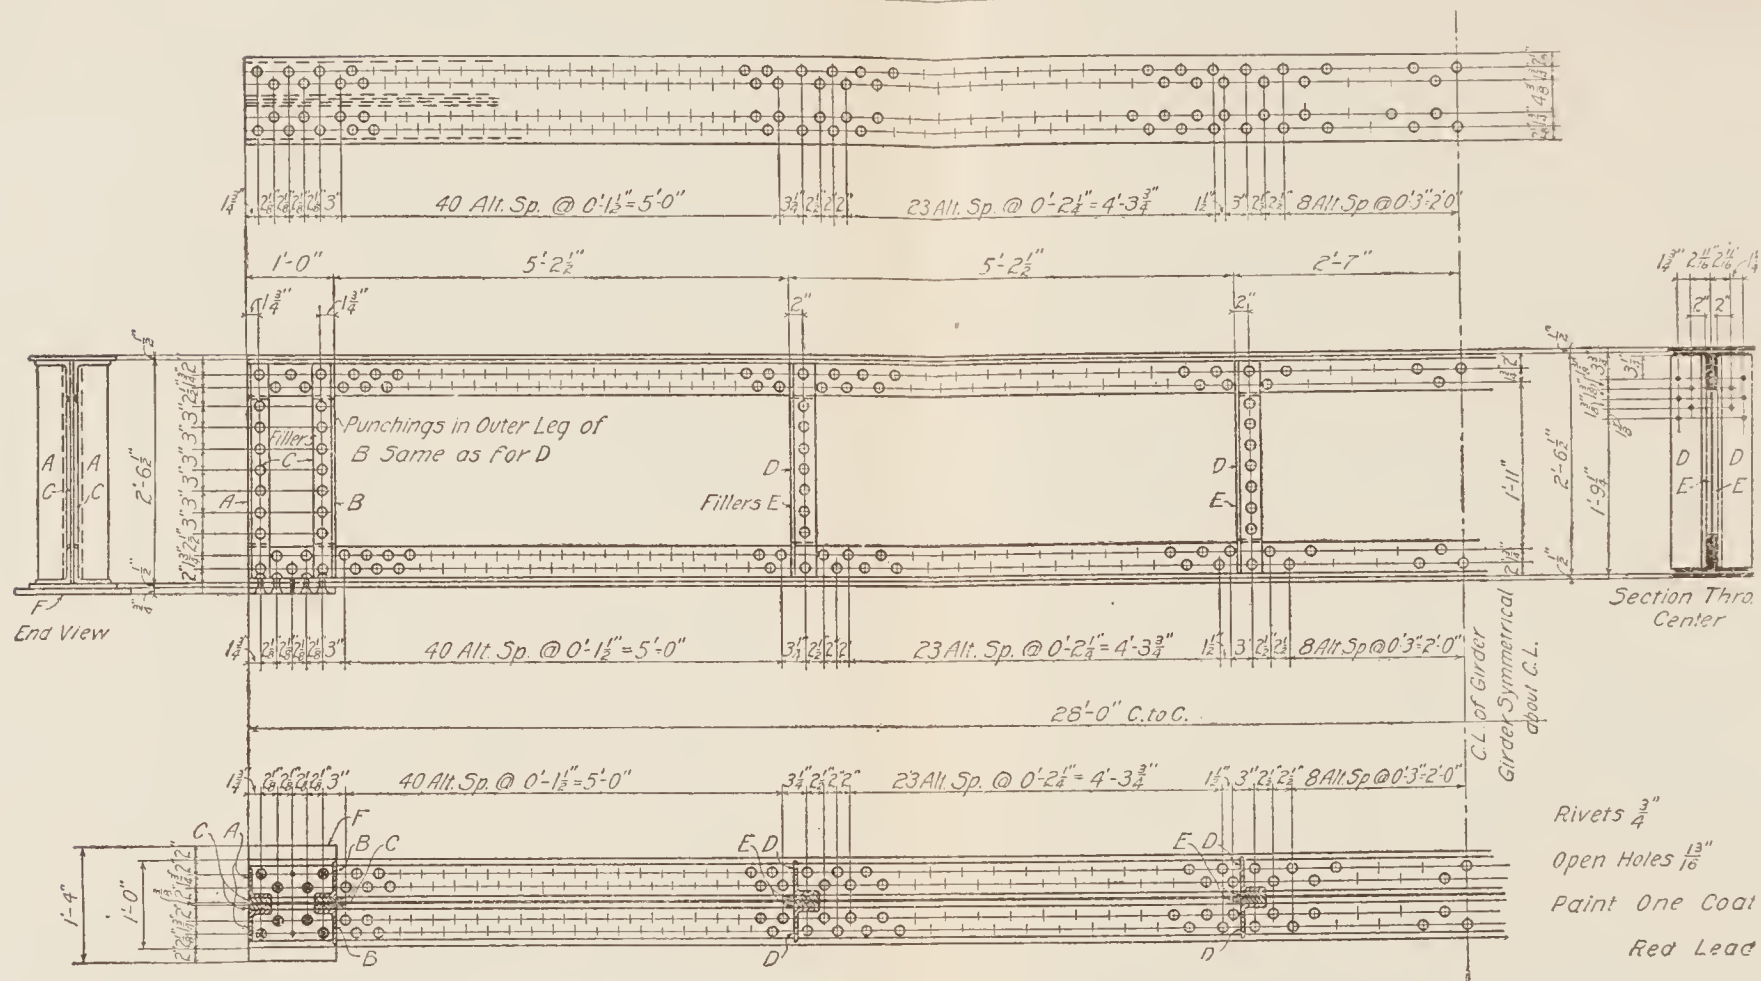 1¾" 2⅛" 2⅛" 2⅛" 2⅛" 3" 40 Alt. Sp. @ 0'-1½" = 5'-0" 3¼" 2½" 2" 2" 23 Alt. Sp. @ 0'-2¼" = 4'-3¾" 1½" 3" 2½" 2½" 8 Alt Sp @ 0'-3"=2'0"
1'-0" 5'-2½" 5'-2½" 2'-7"
1¾" 2 11/16" 2 11/16" 1¾"
1¾" 1¾" 2" 2" 2" 2"
Punchings in Outer Leg of
B Same as for D
Fillers
C
A A
C C
2'-6½"
A B
D
Fillers E
D
E
1'-11"
2'-6½"
1'-9¼"
3½"
D D
E E
F
End View
Section Thro.
Center
1¾" 2⅛" 2⅛" 2⅛" 2⅛" 3" 40 Alt. Sp. @ 0'-1½" = 5'-0" 3¼" 2½" 2" 2" 23 Alt. Sp. @ 0'-2¼" = 4'-3¾" 1½" 3" 2½" 2½" 8 Alt Sp @ 0'-3"=2'-0"
28'-0" C. to C.
C.L. of Girder
Girder Symmetrical
about C.L.
1¾" 2⅛" 2⅛" 2⅛" 2⅛" 3" 40 Alt. Sp. @ 0'-1½" = 5'-0" 3¼" 2½" 2" 2" 23 Alt. Sp. @ 0'-2¼" = 4'-3¾" 1½" 3" 2½" 2½" 8 Alt Sp @ 0'-3"=2'-0"
C A F
B C
E D
E D
1'-4"
1'-0"
B
D
D
Rivets ¾"
Open Holes 13/16"
Paint One Coat
Red Lead